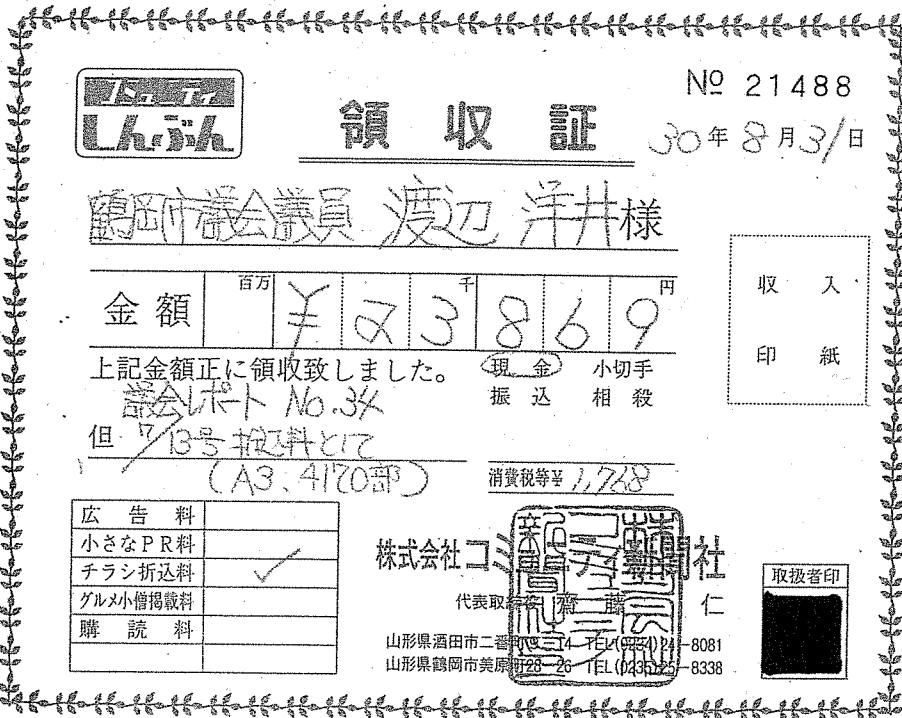 しんぶん
№ 21488
領収証
30年8月31日
鶴岡市議会議員 渡辺 洋井様
金額 百万 千 円
¥23869
上記金額正に領収致しました。
現金 小切手
振込 相殺
議会レポート No.34
但 7/13号折込料として
(A3、4170部)
消費税等¥ 1,768
広告料
小さなPR料
チラシ折込料 ✓
グルメ小僧掲載料
購読料
収入
印紙
株式会社コミ
代表取締役 齋藤 仁
山形県酒田市二番町 14 TEL(0234)24-8081
山形県鶴岡市美原町28-26 TEL(0235)25-8338
取扱者印